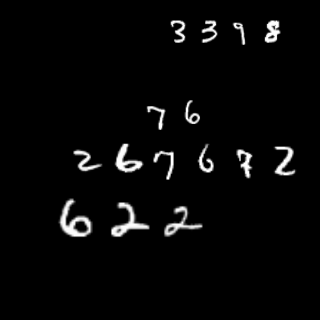 3398
76
267672
622